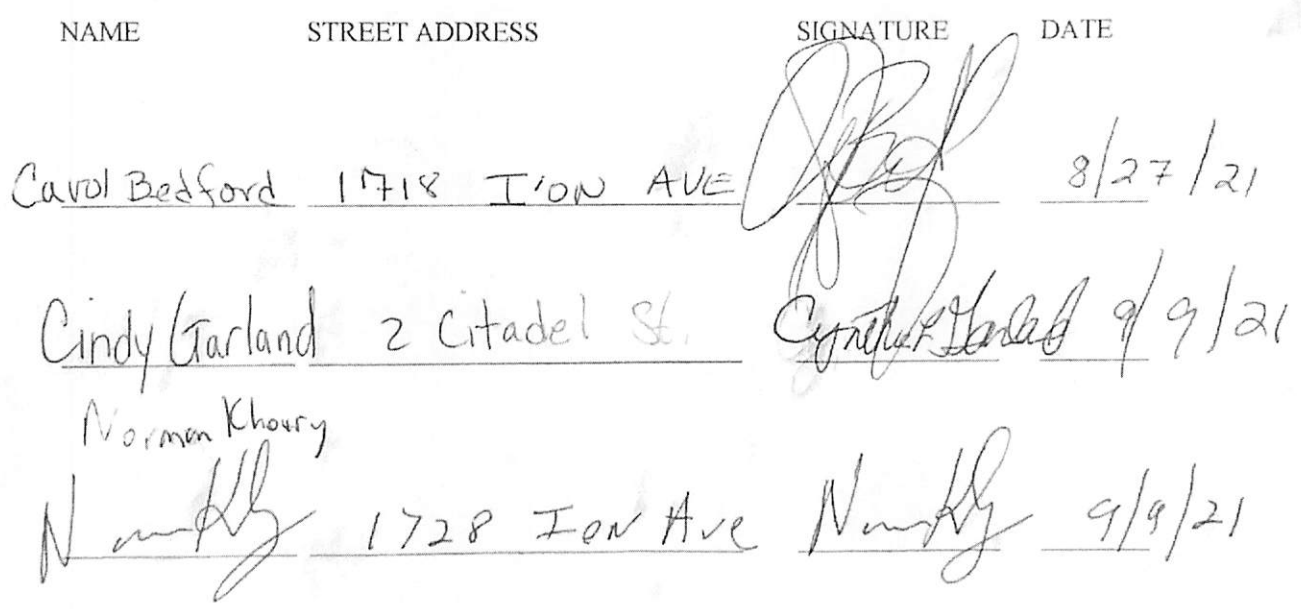 NAME STREET ADDRESS SIGNATURE DATE
Carol Bedford 1718 Ion AVE 8/27/21
Cindy Garland 2 Citadel St. Cynthia Garland 9/9/21
Norman Khoury
1728 Ion Ave 9/9/21